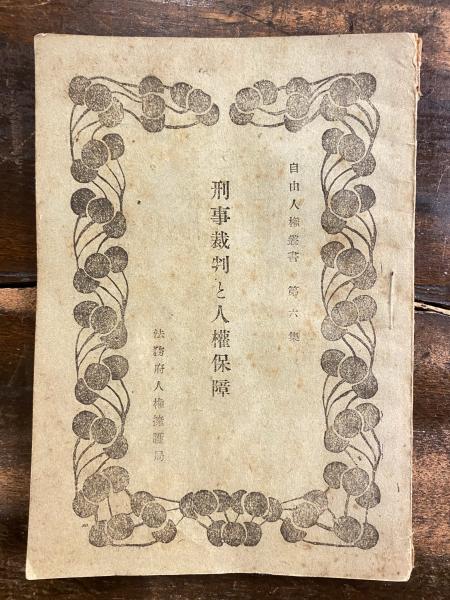 自由人権叢書 第六集
刑事裁判と人權保障
法務府人権擁護局